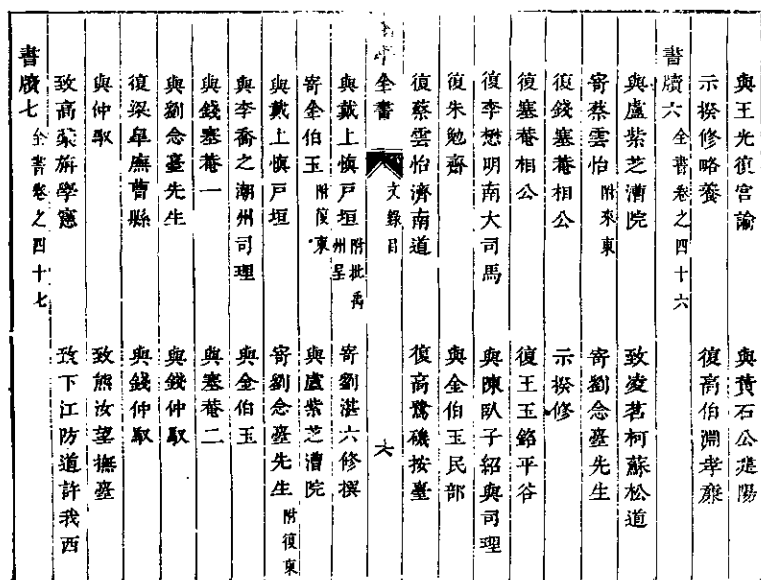 與王光復宮諭　與黃石公陽
示揆修略養　復高伯淵孝廉
書牘六 全書卷之四十六
與盧紫芝漕院　致凌茗柯蘇松道
寄蔡雲怡 附來柬　寄劉念臺先生
復錢塞菴相公　示揆修
復塞菴相公　復王玉銘平谷
復李懋明南大司馬　與陳臥子紹興司理
復朱勉齋　與金伯玉民部
復蔡雲怡濟南道　復高鷺磯按臺
全書　文錄目　六
與戴上慎戶垣 附批禹州呈　寄劉湛六修撰
寄金伯玉 附復柬　與盧紫芝漕院
寄劉念臺先生 附復柬
與李喬之潮州司理　與金伯玉
與錢塞菴一　與塞菴二
與劉念臺先生　與錢仲馭
復梁阜廡曹縣　與錢仲馭
與仲馭　致熊汝望撫臺
致高彙旃學憲　致下江防道許我西
書牘七 全書卷之四十七